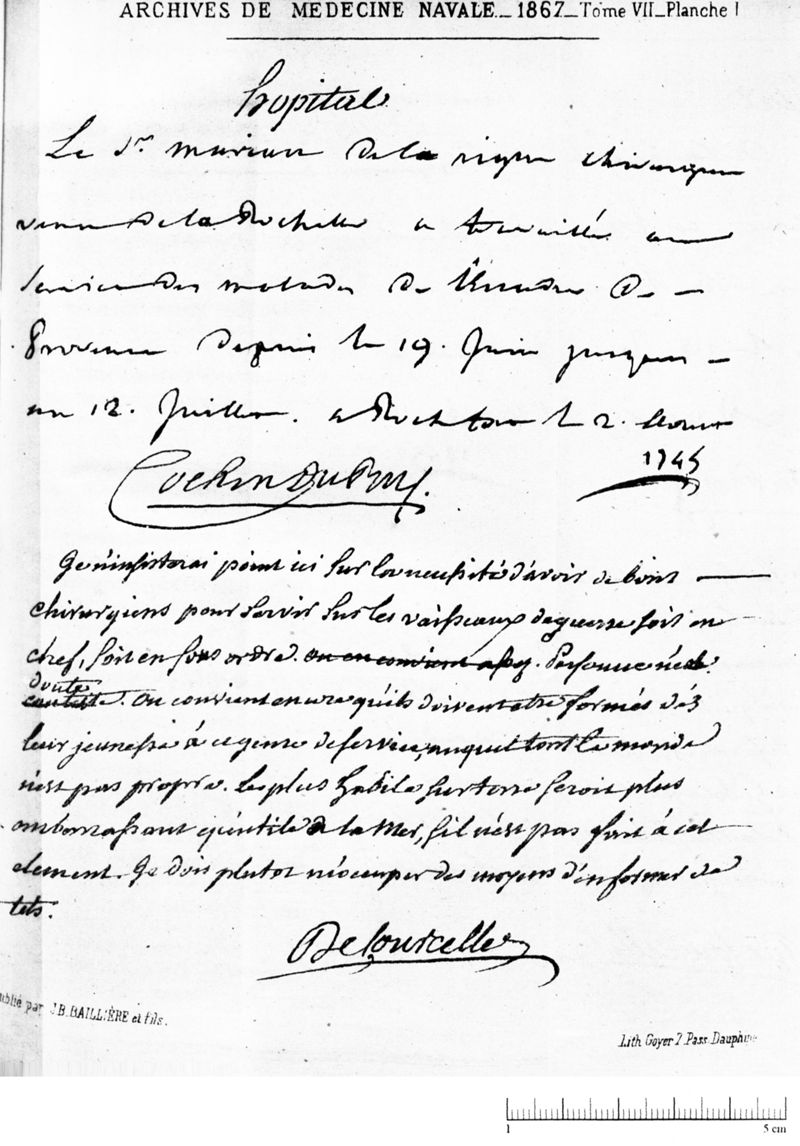 ARCHIVES DE MEDECINE NAVALE_1867_Tome VII_Planche I
hopital
Le Sr. de la chirurgien
venu de la Rochelle a travaillé au
Service des malades de l'Escadre De
Provence Depuis le 19. Juin jusques
au 12. Juillet. a Rochefort le 2. Aoust
1745
Cochon Dupuy.
Je n'insisterai point ici sur la necessité d'avoir de bons
chirurgiens pour servir sur les vaisseaux de guerre soit en
chef, soit en sous ordre. on en convient assez. Personne n'en
doute
On convient encore qu'ils doivent etre formés dés
leur jeunesse à ce genre de service, auquel tout le monde
n'est pas propre. Le plus habile sur terre seroit plus
embarrassant qu'utile a la Mer, s'il n'est pas fait à cet
element. Je dois plutot m'occuper des moyens d'en former de
tels.
De Courcelles
Publié par J.B. BAILLIÈRE et fils.
Lith Goyer 7 Pass. Dauphine
1 5 cm